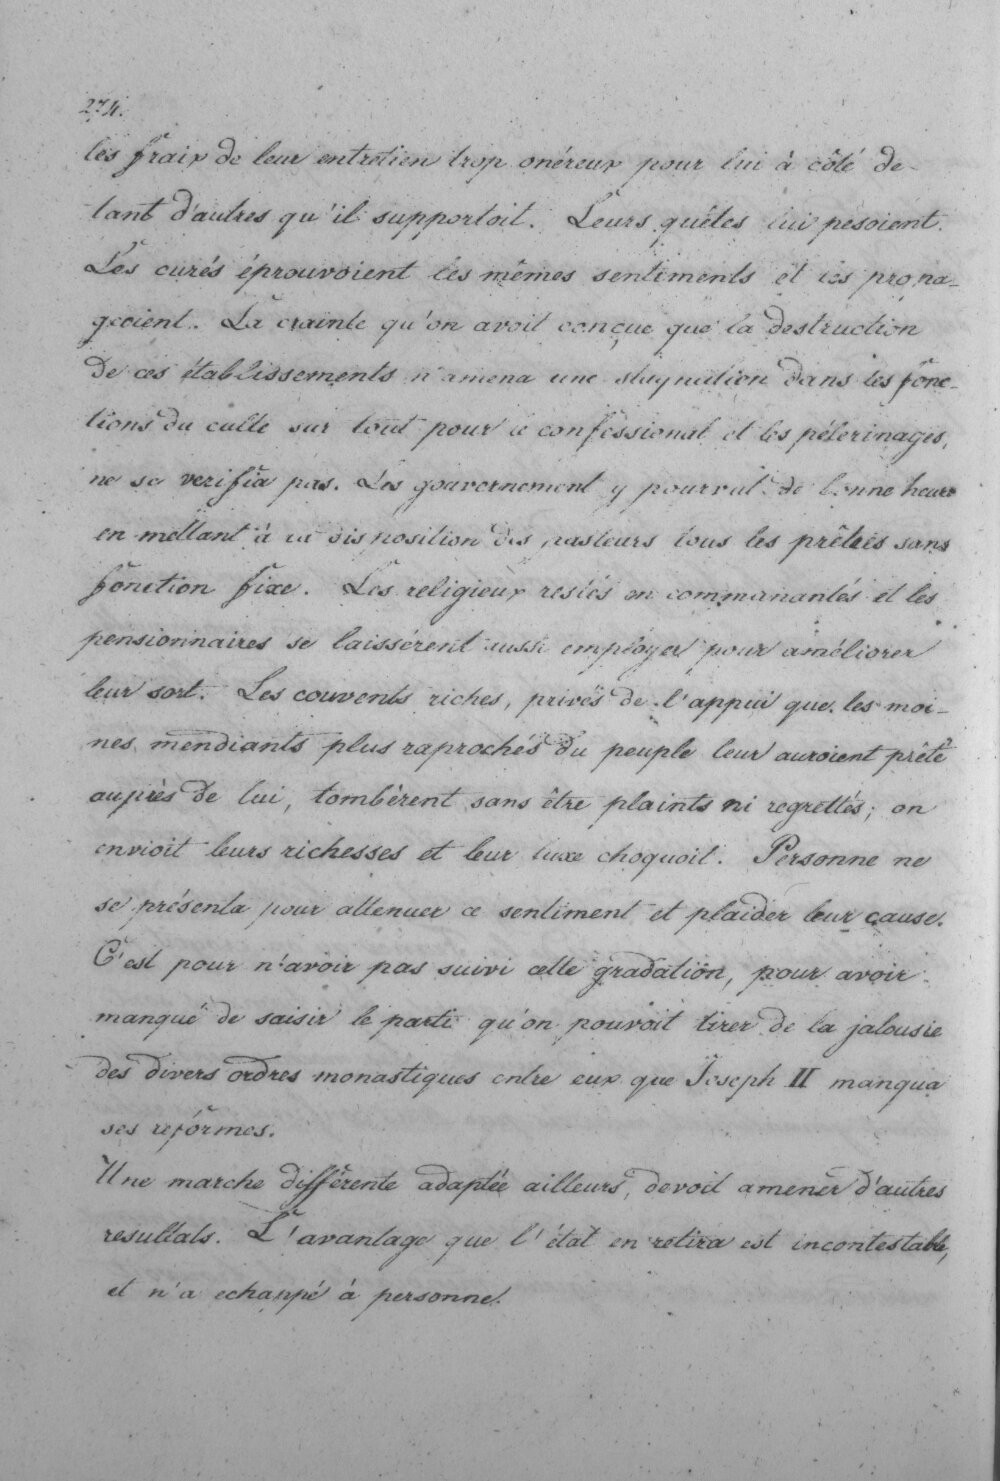 274.
les fraix de leur entretien trop onéreux pour lui à côté de
tant d'autres qu'il supportoit. Leurs quêtes lui pesoient.
Les curés éprouvoient les mêmes sentiments et les propa-
geoient. La crainte qu'on avoit conçue que la destruction
de ces établissements n'amena une stagnation dans les fonc-
tions du culte sur tout pour le confessional et les pélerinages,
ne se verifia pas. Les gouvernement y pourvut de bonne heure
en mettant à la disposition des pasteurs tous les prêtres sans
fonction fixe. Les religieux restés en communautés et les
pensionnaires se laissérent aussi employer pour améliorer
leur sort. Les couvents riches, privés de l'appui que les moi-
nes mendiants plus raprochés du peuple leur auroient prêté
auprès de lui, tombèrent sans être plaints ni regrettés; on
envioit leurs richesses et leur luxe choquoit. Personne ne
se présenta pour attenuer ce sentiment et plaider leur cause.
C'est pour n'avoir pas suivi cette gradation, pour avoir
manqué de saisir le parti qu'on pouvoit tirer de la jalousie
des divers ordres monastiques entre eux que Joseph II manqua
ses reformes.
Une marche différente adaptée ailleurs, devoit amener d'autres
resultats. L'avantage que l'état en retira est incontestable,
et n'a echappé à personne.